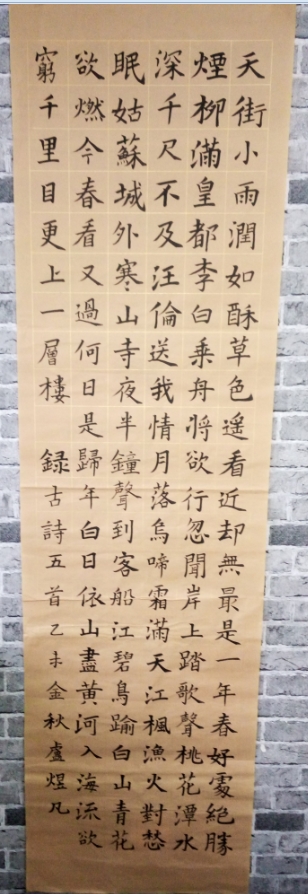 天街小雨潤如酥草色遥看近却無最是一年春好處絕勝
煙柳滿皇都李白乘舟將欲行忽聞岸上踏歌聲桃花潭水
深千尺不及汪倫送我情月落烏啼霜滿天江楓漁火對愁
眠姑蘇城外寒山寺夜半鐘聲到客船江碧鳥踰白山青花
欲燃今春看又過何日是歸年白日依山盡黄河入海流欲
窮千里目更上一層樓 録古詩五首乙未金秋盧煜凡